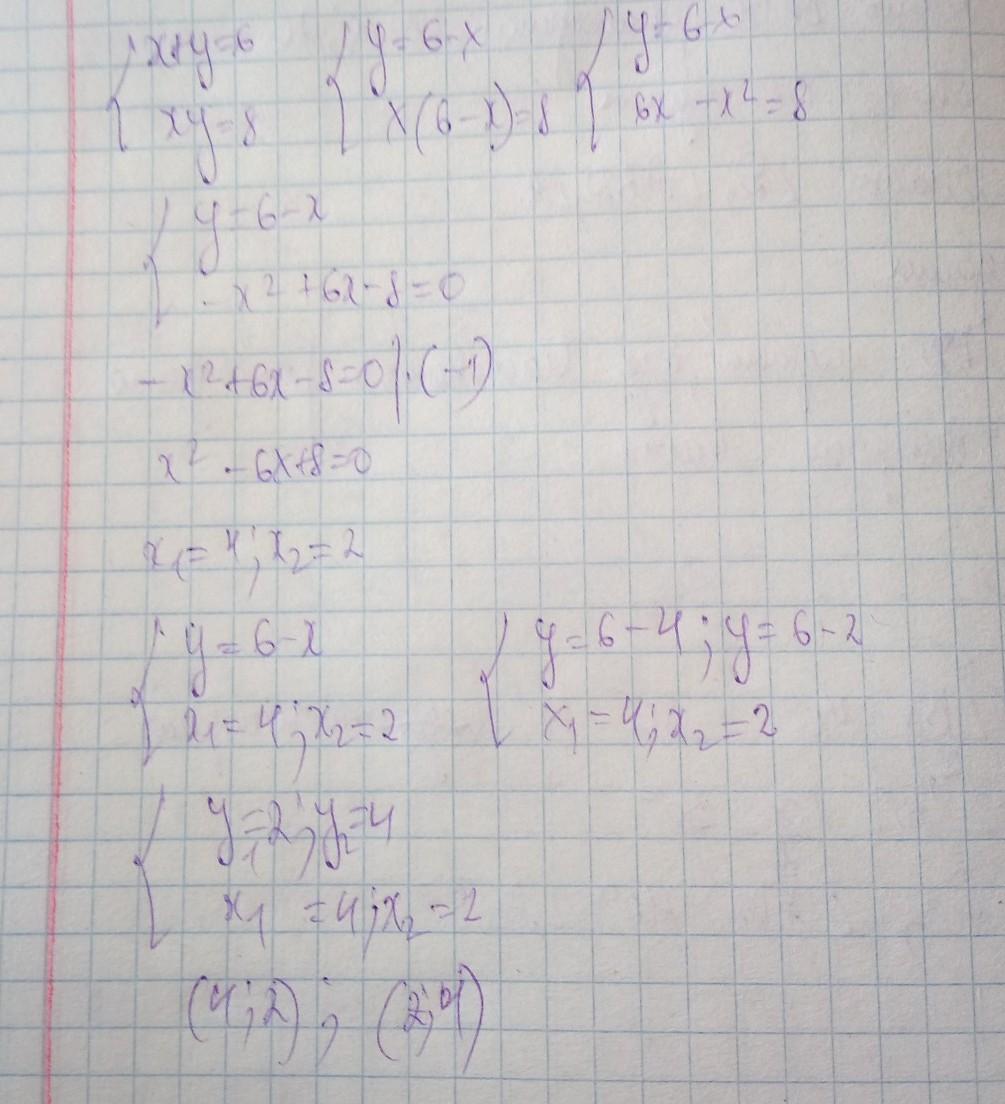 { x+y=6 { y=6-x { y=6-x
xy=8 x(6-x)=8 6x -x²=8
{ y=6-x
-x²+6x-8=0
-x²+6x-8=0 | ·(-1)
x²-6x+8=0
x₁=4; x₂=2
{ y=6-x { y=6-4; y=6-2
x₁=4; x₂=2 x₁=4; x₂=2
{ y₁=2; y₂=4
x₁=4; x₂=2
(4;2); (2;4)